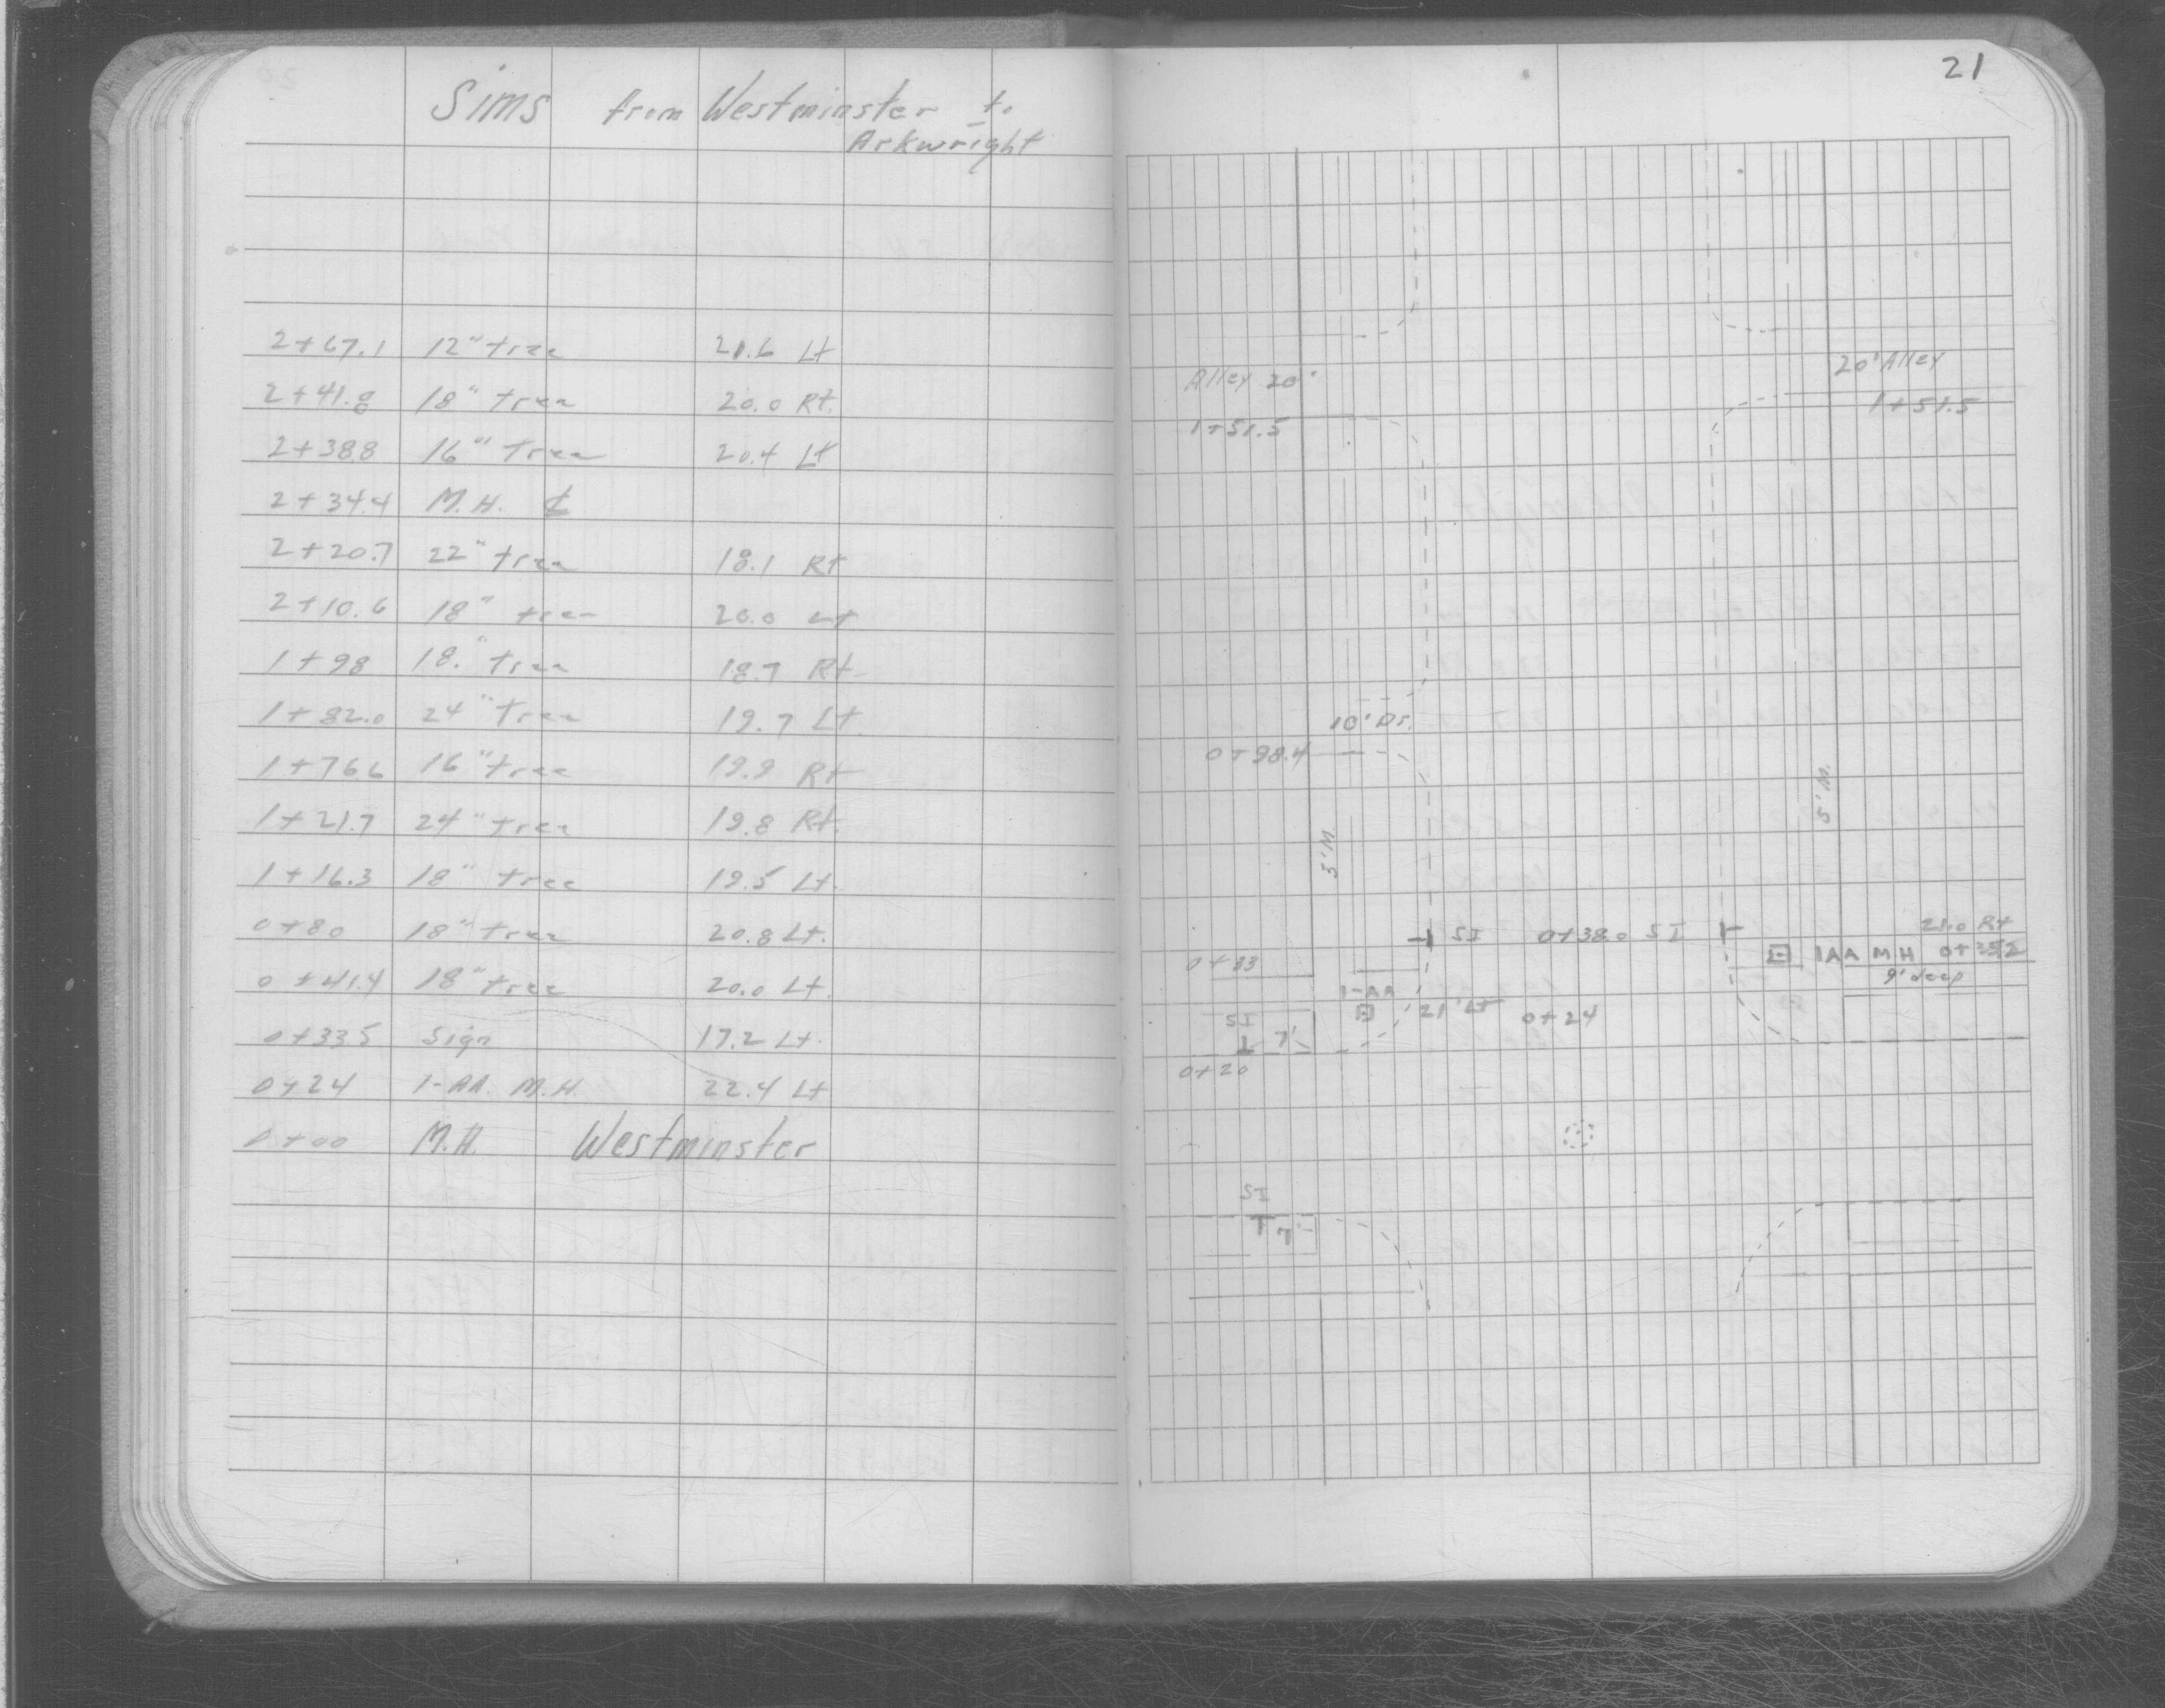 Sims from Westminster to
Arkwright
2+67.1 12" tree 21.6 Lt
2+41.8 18" tree 20.0 Rt.
2+38.8 16" tree 20.4 Lt
2+34.4 M.H. ℄
2+20.7 22" tree 18.1 Rt
2+10.6 18" tree 20.0 Lt
1+98 18." tree 18.7 Rt
1+82.0 24" tree 19.7 Lt.
1+76.6 16" tree 19.9 Rt
1+21.7 24" tree 19.8 Rt.
1+16.3 18" tree 19.5 Lt.
0+80 18" tree 20.8 Lt.
0+41.4 18" tree 20.0 Lt.
0+33.5 Sign 17.2 Lt.
0+24 1-AA. M.H. 22.4 Lt
0+00 M.H. Westminster
21
20' Alley
Alley 20'
1+51.5
1+51.5
10' Dr.
0+98.4
5' M.
3' M.
21.0 Rt
SI 0+38.0 SI
1AA MH 0+
9' deep
0+33
1-AA
21' Lt 0+24
SI
7'
0+20
SI
7'